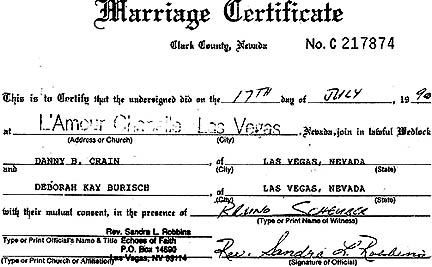 Marriage Certificate
Clark County, Nevada No. C 217874
This is to Certify that the undersigned did on the 17TH day of JULY, 1990
at L'Amour Chapelle Las Vegas, Nevada, join in lawful Wedlock
(Address or Church) (City)
DANNY B. CRAIN, of LAS VEGAS, NEVADA
and (City) (State)
DEBORAH KAY BURISCH, of LAS VEGAS, NEVADA
(City) (State)
with their mutual consent, in the presence of
(Type or Print Name of Witness)
Rev. Sandra L. Robbins
Type or Print Official's Name & Title Echoes of Faith
P.O. Box 14890 Rev. Sandra L. Robbins
(Type or Print Church or Affiliation) Las Vegas, NV 89114 (Signature of Official)